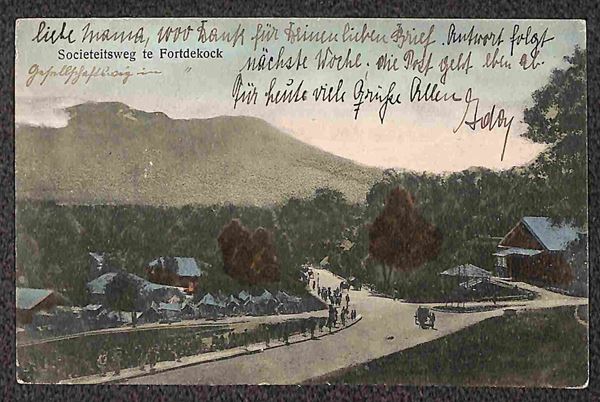 liebe Mama, 1000 Dank für Deinen lieben Brief. Antwort folgt
Societeitsweg te Fortdekock
nächste Woche. die Post geht eben ab.
Gesellschaftsweg in "
Für heute viele Grüsse Allen